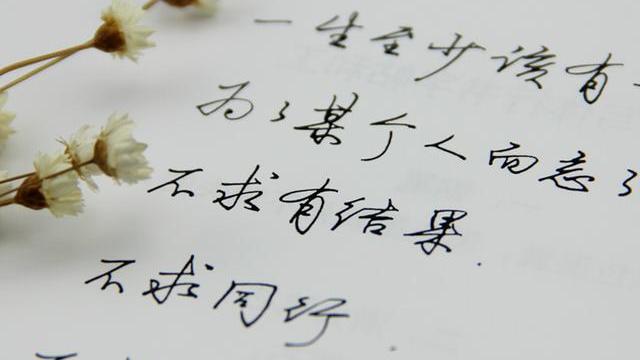 一生至少该有一
为了某个人而忘了
不求有结果.
不求同行